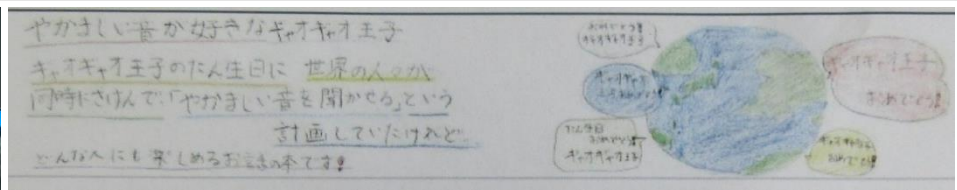 やかましい音が好きなギャオギャオ王子
ギャオギャオ王子のたん生日に 世界の人々が
同時にさけんで「やかましい音を聞かせる」という
計画していたけれど…
どんな人にも楽しめるお話の本です!
おめでとう!
ギャオギャオ王子
ギャオギャオ
ギャオギャオ王子
おめでとう!
たん生日
おめでとう!
ギャオギャオ王子
おめでとう!